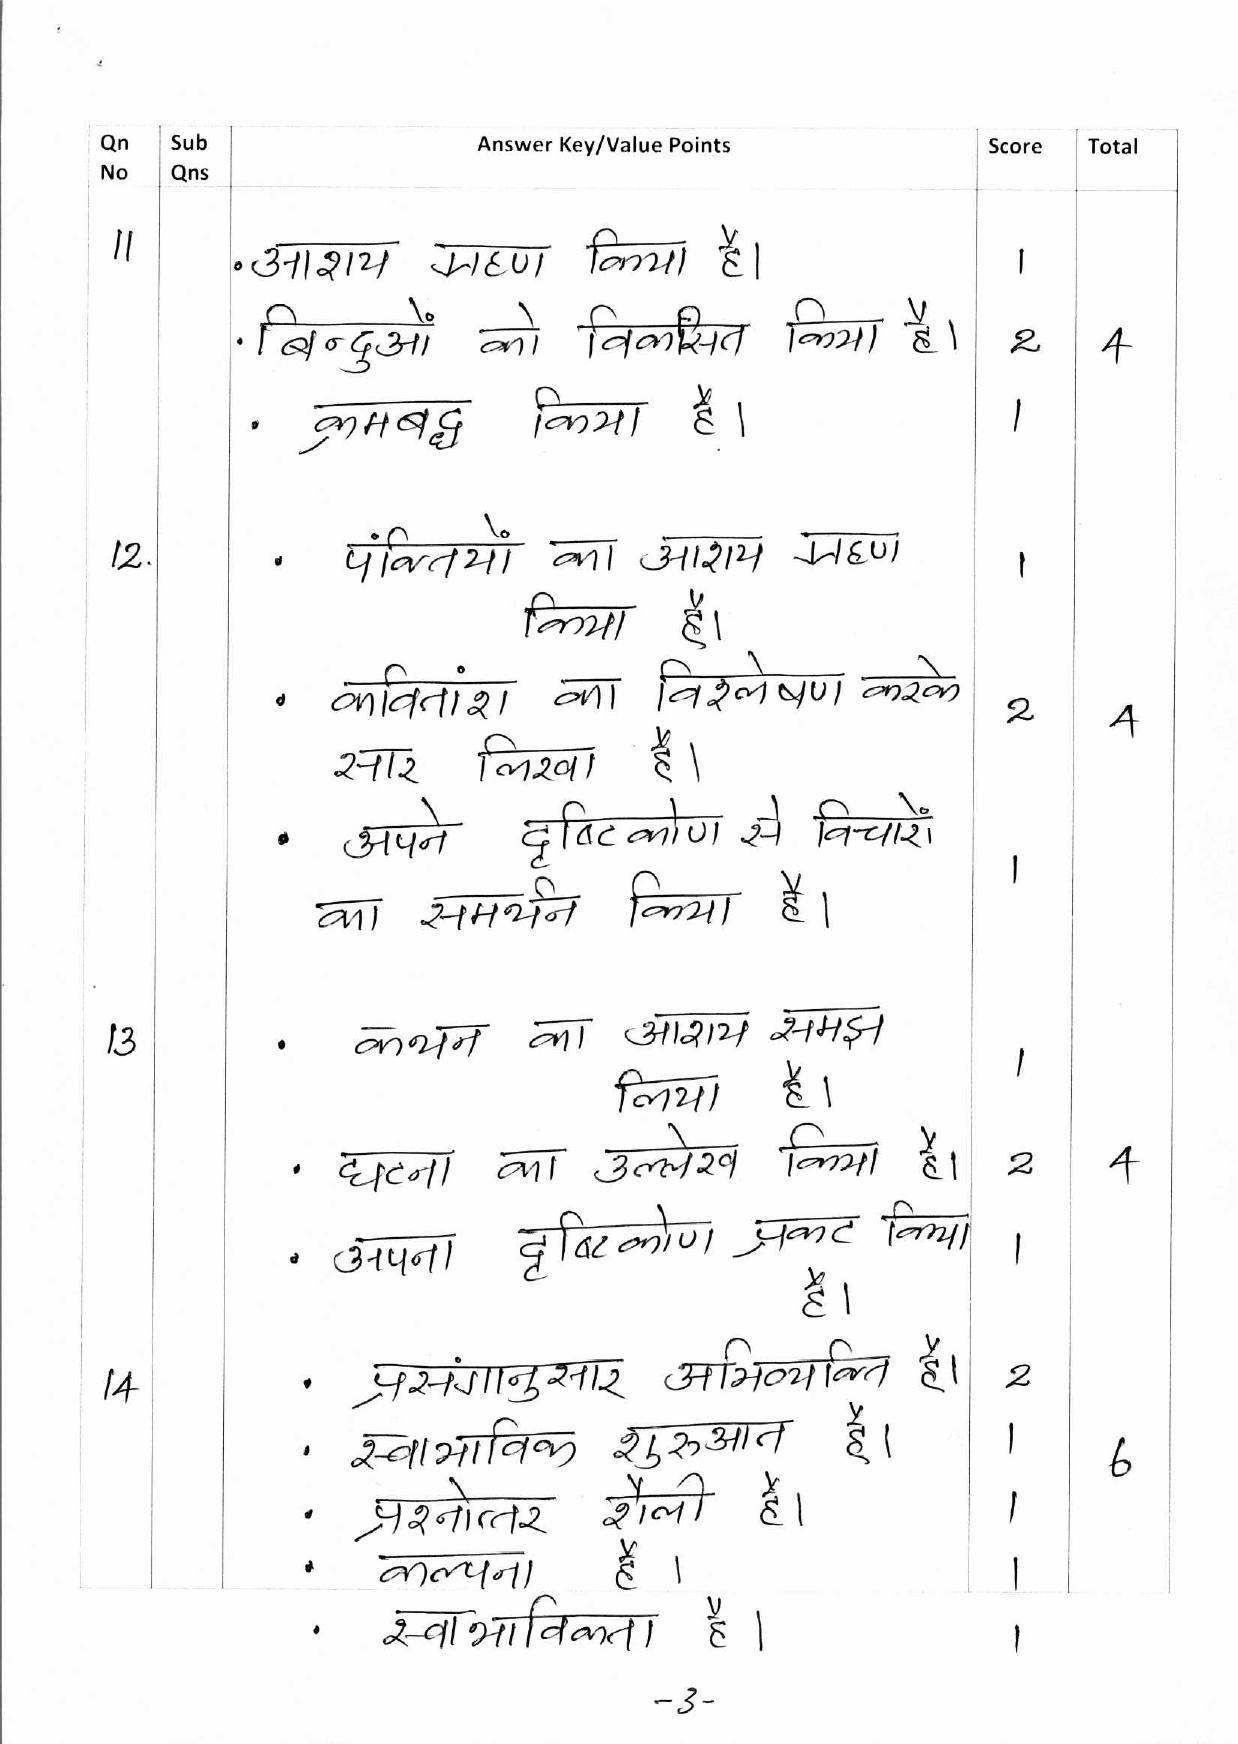 Qn Sub Answer Key/Value Points Score Total
No Qns
11 • आशय ग्रहण किया है। 1
• बिन्दुओं को विकसित किया है। 2 4
• क्रमबद्ध किया है। 1
12. • पंक्तियों का आशय ग्रहण 1
किया है।
• कवितांश का विश्लेषण करके 2 4
सार लिखा है।
• अपने दृष्टिकोण से विचारों
का समर्थन किया है। 1
13 • कथन का आशय समझ
लिया है। 1
• घटना का उल्लेख किया है। 2 4
• अपना दृष्टिकोण प्रकट किया 1
है।
14 • प्रसंगानुसार अभिव्यक्ति है। 2
• स्वाभाविक शुरुआत है। 1 6
• प्रश्नोत्तर शैली है। 1
• कल्पना है। 1
• स्वाभाविकता है। 1
-3-